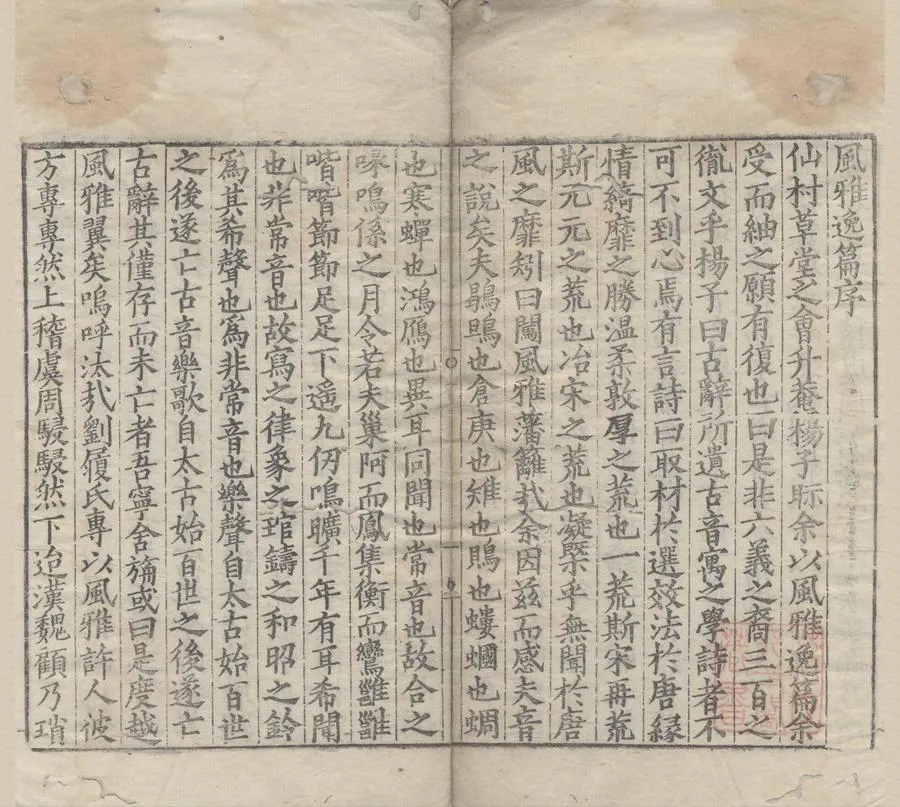 風雅逸篇序
仙村草堂之會升菴楊子眎余以風雅逸篇余
受而紬之願有復也曰是非六義之裔三百之
胤文乎楊子曰古辭所遺古音寓之學詩者不
可不到心焉有言詩曰取材於選效法於唐緣
情綺靡之勝溫柔敦厚之荒也一荒斯宋再荒
斯元元之荒也冶宋之荒也凝槩乎無聞於唐
風之靡矧曰闖風雅藩籬㢤余因兹而感夫音
之說矣夫鶗鴂也倉庚也雉也鵙也螻蟈也蜩
也寒蟬也鴻鴈也異耳同聞也常音也故合之
喙鳴係之月令若夫巢阿而鳳集衡而鸞雝雝
喈喈節節足足下遥九仞鳴曠千年有耳希聞
也非常音也故寫之律象之琯鑄之和昭之鈴
爲其希聲也爲非常音也樂聲自太古始百世
之後遂亡古音樂歌自太古始百世之後遂亡
古辭其僅存而未亡者吾寧舍旃或曰是度越
風雅翼矣嗚呼汰㢤劉履氏專以風雅許人彼
方專專然上稽虞周駸駸然下迨漢魏顧乃瑣